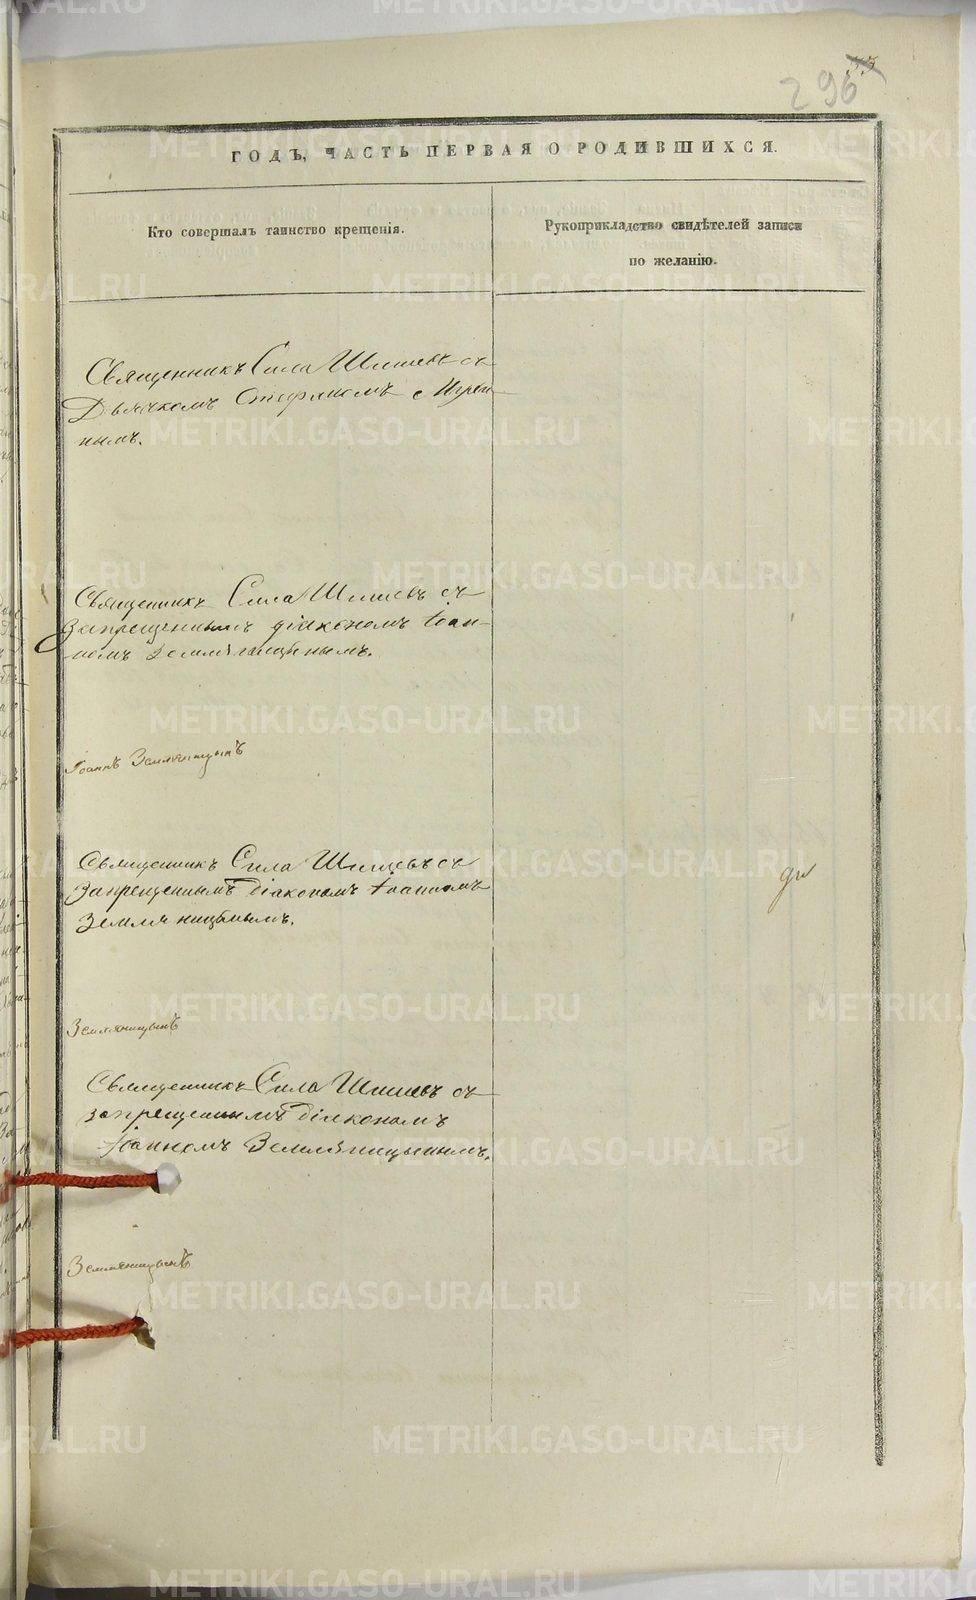 296
55
ГОДЪ, ЧАСТЬ ПЕРВАЯ О РОДИВШИХСЯ.
Кто совершалъ таинство крещенія.
Рукоприкладство свидѣтелей записи
по желанію.
Священникъ Сила Шишевъ съ
Дьячкомъ Стефаномъ
нымъ.
Священникъ Сила Шишевъ съ
запрещеннымъ діакономъ Іоан-
номъ Земляницынымъ.
Іоаннъ Земляницынъ
Священникъ Сила Шишевъ съ
запрещеннымъ діакономъ Іоанномъ
Земляницынымъ.
Земляницынъ
Священникъ Сила Шишевъ съ
запрещеннымъ діакономъ
Іоанномъ Земляницынымъ.
Земляницынъ
METRIKI.GASO-URAL.RU